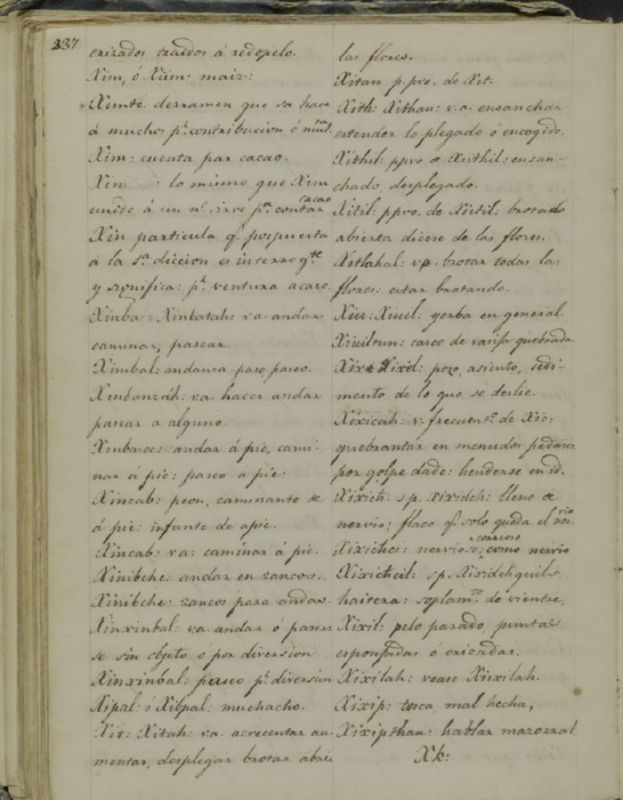 237
erizados traidos á redopelo.
Xim, ó Xiim: maiz:
Ximte derramen que se hace
á muchos pr. contribucion ó
Xim: cuenta par cacao.
Xin lo mismo que Xim
unido á un no. sirve pa. contar cacao
Xin particula q. pospuesta
á la sa. diccion es interrogte.
y significa: pr. ventura acaso.
Xinba: Xinbatah: va. andar
caminar, pasear
Ximbal: andanza paso, paseo.
Xinbanzah: va. hacer andar
pasear a alguno.
andar á pie, cami-
nar á pie: paseo a pie:
Xincab: peon, caminante de
á pie: infante de apie.
Xincab: va: caminar á pie.
Xinibche: andar en zancos.
Xinibche: zancos para andar.
Xinxinbal: va. andar ó pasear
se sin objeto ó por diversion
Xinxinbal: paseo pr. diversion
Xipal: ó Xibpal: muchacho.
Xit: Xitah: va. acrecentar au-
mentar, desplegar brotar abrir
las flores.
Xitan p.pro. de Xit.
Xith: Xithan: v.a. ensanchar
estender lo plegado ó encogido.
Xithil: ppro o Xiithil: ensan-
chado, desplegado.
Xitil: ppro. de Xictil: brotado
abierta dicese de las flores.
Xitlahal: va. brotar todas las
flores: estar brotando.
Xiu: Xiuil: yerba en general
Xiuiltun: casco de vasija quebrada
Xix Xixil: pozo, asiento, sedi-
mento de lo que se deslie.
Xixicah: v. frecuento. de Xic:
quebrantar en menudos pedazos
por golpe dado: henderse en id.
Xixich: s.p. xixidch: lleno de
nervio; flaco q. solo queda el nervio
Xixichci: nervioso: correoso como nervio
Xixichcil: s.p. Xixidchquil:
haitera: soplamto. de vientre.
Xixil: pelo parado, plumas
esponjadas ó erizadas.
Xixilah: vease Xiixilah.
Xixip: tosca, mal hecha,
Xixipthan: hablar mazorral
Xk: